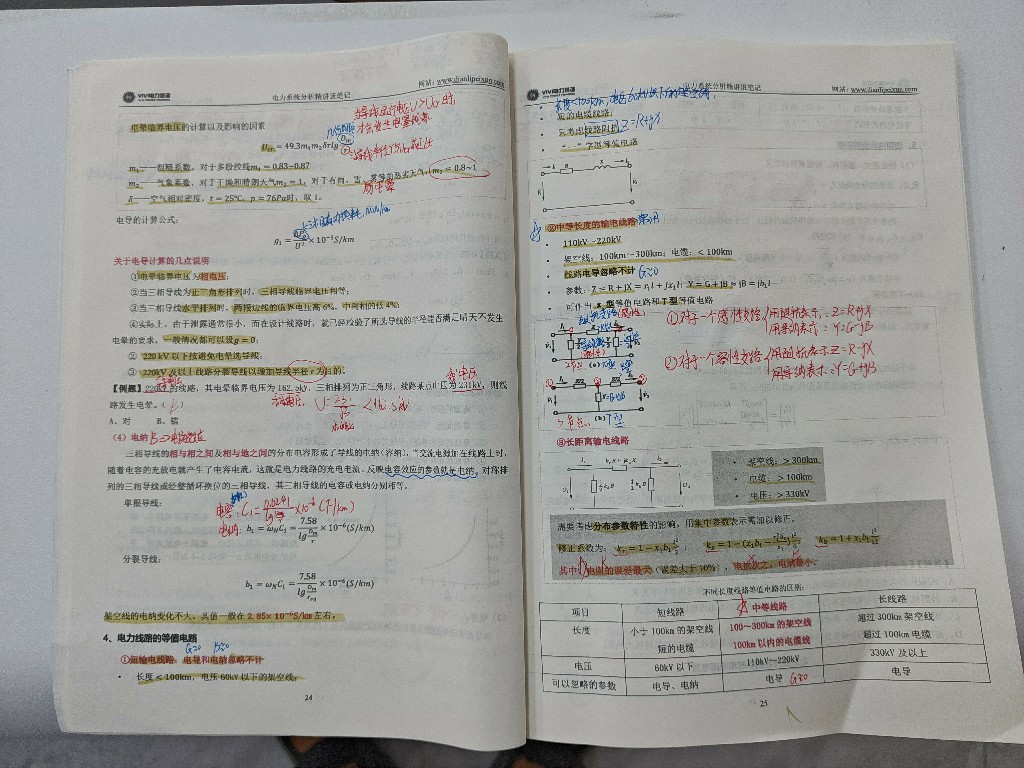 VIV电力课堂
电力系统分析精讲班笔记
网站：www.dianlipeixun.com
电晕临界电压的计算以及影响的因素
导线运行电压U>Ucr时
才会发生电晕现象
Ucr = 49.3m₁m₂δr lg
m₁——粗糙系数，对于多股绞线m₁=0.83~0.87
m₂——气象系数，对于干燥和晴朗天气m₂=1，对于有雨、雪、雾等的恶劣天气，m₂=0.8~1
易电晕
δ——空气相对密度，t=25°C，p=76Pa时，取1。
电导的计算公式：
g₁ = ΔPg/U² × 10⁻³ S/km
关于电导计算的几点说明
①电晕临界电压为相电压；
②当三相导线为正三角形排列时，三相导线临界电压相等；
③当三相导线水平排列时，两根边线的临界电压高6%，中间相的低4%；
④实际上，由于泄露通常很小，而在设计线路时，就已经检验了所选导线的半径是否满足晴天不发生
电晕的要求，一般情况都可以设g=0；
② 220kV以下按避免电晕选导线，
③ 220kV及以上线路分裂导线以增加导线半径r为目的。
线电压
【例题】220kV的线路，其电晕临界电压为162.5kV，三相排列为正三角形，线路某点电压为231kV，则线
路发生电晕。（ ）
A、对 B、错
（4）电纳
三相导线的相与相之间及相与地之间的分布电容形成了导线的电纳（容纳）。"交流电源加在线路上时，
随着电容的充放电就产生了电容电流，这就是电力线路的充电电流。反映电容效应的参数就是电纳。对称排
列的三相导线或经整循环换位的三相导线，其三相导线的电容或电纳分别相等。
单根导线：
电容：C₁ = 0.0241/lg × 10⁻⁶ (F/km)
电纳：b₁ = ωNC₁ = 7.58/lg(Dm/r) × 10⁻⁶(S/km)
分裂导线：
b₁ = ωNC₁ = 7.58/lg(Dm/req) × 10⁻⁶(S/km)
架空线的电纳变化不大，其值一般在2.85×10⁻⁶S/km左右。
4、电力线路的等值电路
G≈0 B≈0
①短输电线路：电导和电纳忽略不计
• 长度<100km，电压60kV以下的架空线；
24
VIV电力课堂
电力系统分析精讲班笔记
网站：www.dianlipeixun.com
• 短的电缆线路；
只考虑线路阻抗Z=R+jX
• "一"字型等值电路
②中等长度的输电线路
• 110kV~220kV
• 架空线：100km~300km；电缆：<100km
• 线路电导忽略不计 G≈0
• 参数：Z = R + jX = r₁l + jx₁l；Y = G + jB = jB = jb₁l
• 可作出π型等值电路和T型等值电路
①对于一个感性支路 用阻抗表示：Z=R+jX
用导纳表示：Y=G-jB
②对于一个容性支路 用阻抗表示Z=R-jX
用导纳表示：Y=G+jB
(a) π型
(b) T型
③长距离输电线路
• 架空线：>300km
• 电缆：>100km
• 电压：>330kV
需要考虑分布参数特性的影响，用集中参数表示需加以修正。
修正系数为：
其中，电阻的误差最大（误差大于10%），电抗次之，电纳最小。
不同长度线路等值电路的区别：
项目 短线路 中等线路 长线路
长度 小于100km的架空线 100~300km的架空线 超过300km架空线
短的电缆 100km以内的电缆线 超过100km电缆
电压 60kV以下 110kV~220kV 330kV及以上
可以忽略的参数 电导、电纳 电导 G≈0 电导
25